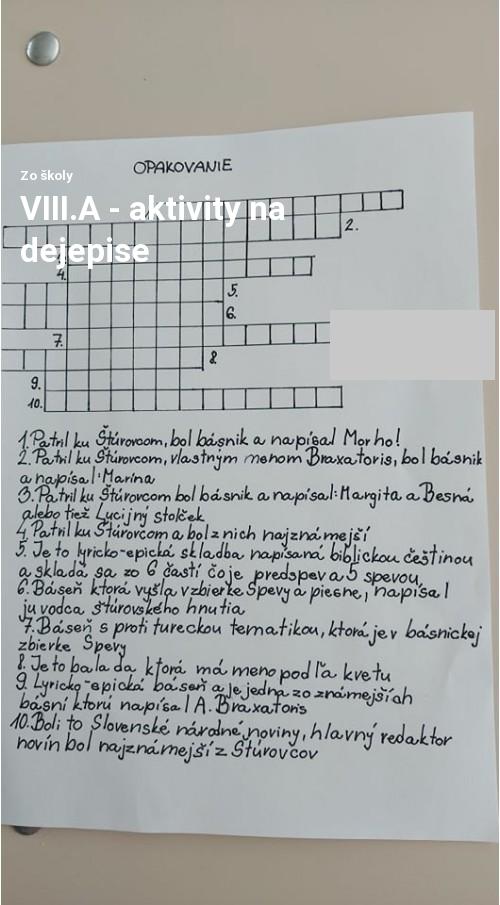 OPAKOVANIE
Zo školy
VIII.A - aktivity na
dejepise
2.
4.
5.
6.
7.
8.
9.
10.
1. Patril ku Štúrovcom, bol básnik a napísal Mor ho!
2. Patril ku Štúrovcom, vlastným menom Braxatoris, bol básnik
a napísal: Marína
3. Patril ku Štúrovcom bol básnik a napísal: Margita a Besná
alebo tiež Lucijný stolček
4. Patril ku Štúrovcom a bol z nich najznámejší
5. Je to lyricko-epická skladba napísaná biblickou češtinou
a skladá sa zo 6 častí čo je predspev a 5 spevov
6. Báseň ktorá vyšla v zbierke Spevy a piesne, napísal
ju vodca štúrovského hnutia
7. Báseň s proti tureckou tematikou, ktorá je v básnickej
zbierke Spevy
8. Je to balada ktorá má meno podľa kvetu
9. Lyricko-epická báseň a je jedna zo známejších
básní ktorú napísal A. Braxatoris
10. Boli to Slovenské národné noviny, hlavný redaktor
novín bol najznámejší z Štúrovcov